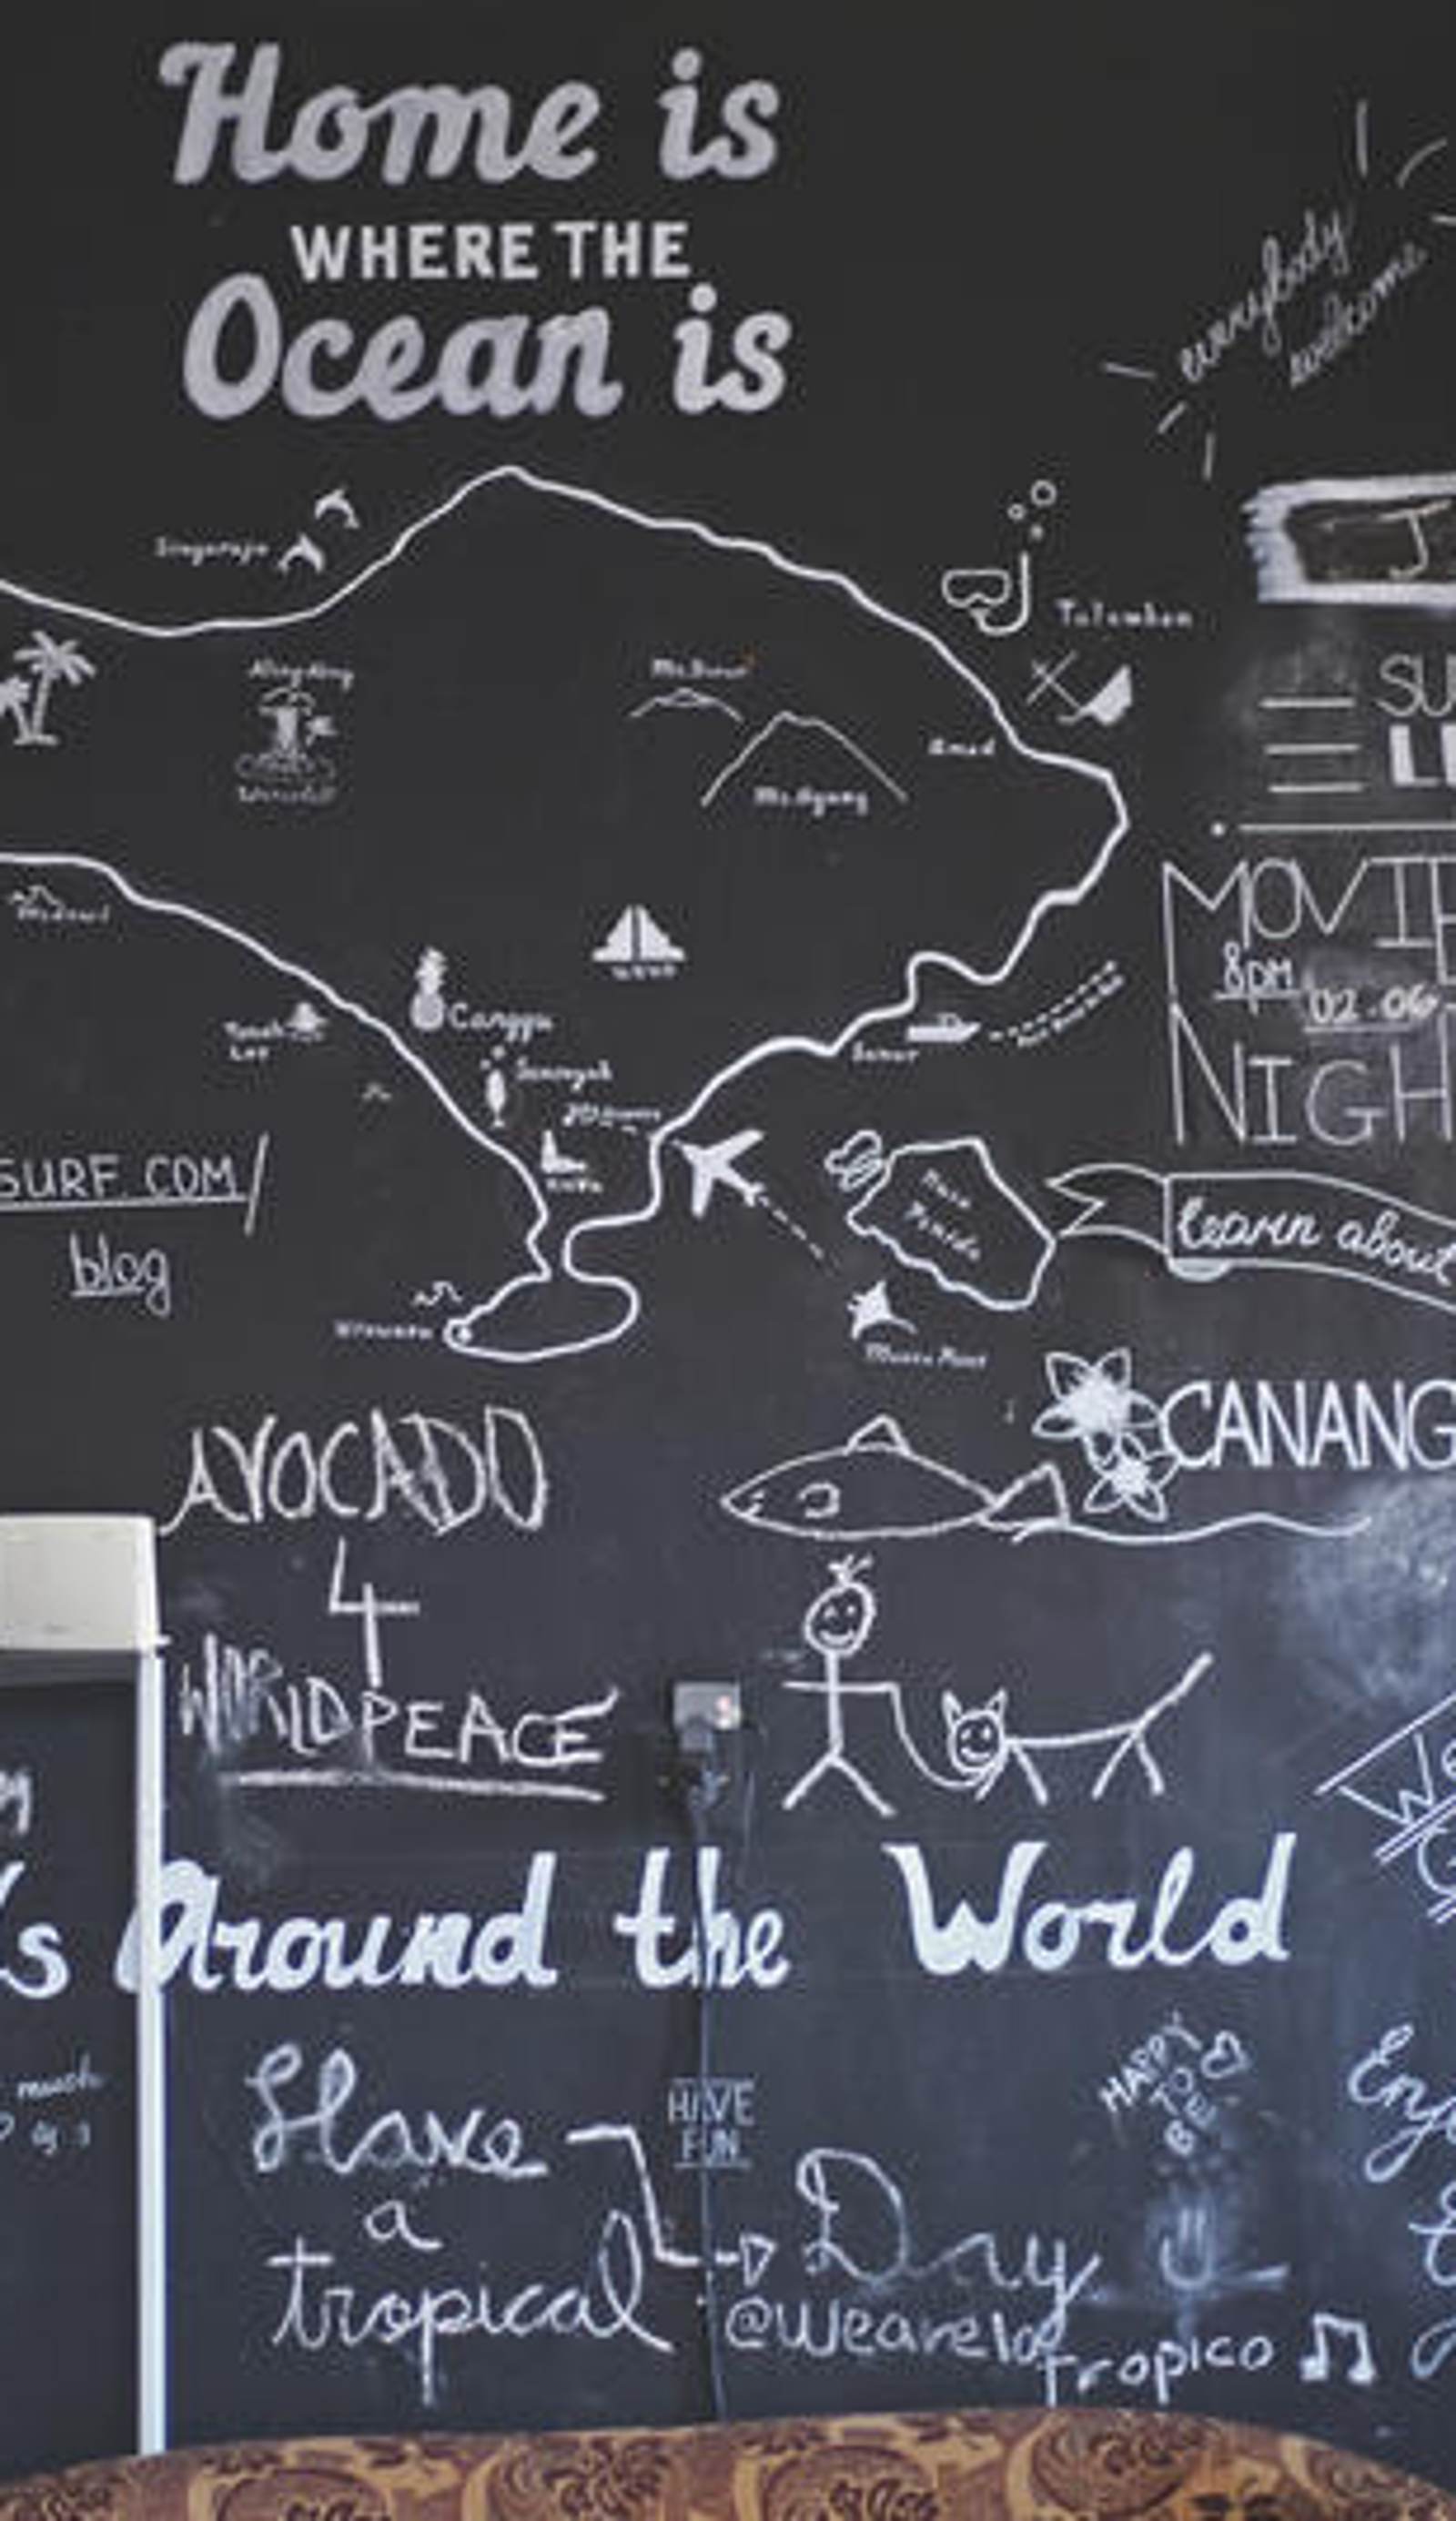 Home is
WHERE THE
Ocean is
everybody
welcome
Singaraja
Tulamben
Aling Aling
Waterfall
Amed
Mt. Agung
SU
MOVIE
8pm
02.06
NIGH
Canggu
Tanah
Lot
Sanur
Seminyak
Kuta
Nusa
Penida
SURF.COM/
blog
learn about
Uluwatu
Manta Point
CANANG
AVOCADO
4
WORLDPEACE
's Around the World
much
HAPPY
TO
BE
Have
a
tropical
Day
HAVE
FUN
@wearelo
Tropico